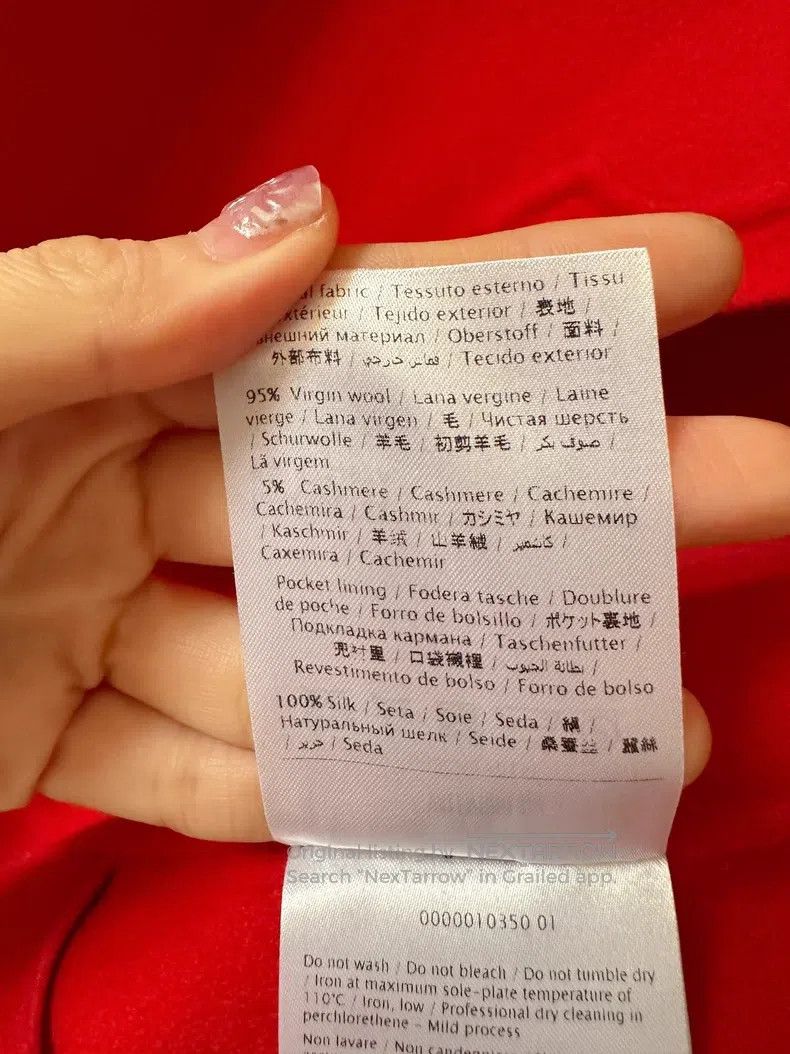 fabric / Tessuto esterno / Tissu
extérieur / Tejido exterior / 表地 /
внешний материал / Oberstoff / 面料 /
外部布料 / قماش خارجي / Tecido exterior
95% Virgin wool / Lana vergine / Laine
vierge / Lana virgen / 毛 / Чистая шерсть
/ Schurwolle / 羊毛 / 初剪羊毛 / صوف بكر /
Lã virgem
5% Cashmere / Cashmere / Cachemire /
Cachemira / Cashmir / カシミヤ / Кашемир
/ Kaschmir / 羊绒 / 山羊絨 / كاشمير /
Caxemira / Cachemir
Pocket lining / Fodera tasche / Doublure
de poche / Forro de bolsillo / ポケット裏地 /
Подкладка кармана / Taschenfutter /
兜衬里 / 口袋襯裡 / بطانة الجيوب /
Revestimento de bolso / Forro de bolso
100% Silk / Seta / Soie / Seda / 絹 /
Натуральный шелк / Seide / 桑蚕丝 / 蠶絲
/ حرير / Seda
Original listing by NEXTARROW
Search "NexTarrow" in Grailed app.
0000010350 01
Do not wash / Do not bleach / Do not tumble dry
/ Iron at maximum sole-plate temperature of
110°C / Iron, low / Professional dry cleaning in
perchlorethene - Mild process
Non lavare / Non